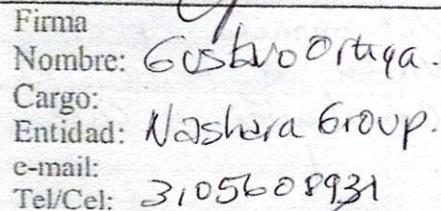 Firma
Nombre: Gustavo Ortega.
Cargo:
Entidad: Nashara Group.
e-mail:
Tel/Cel: 3105608931